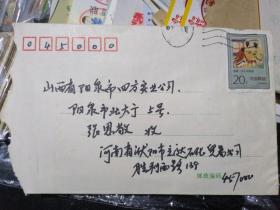 045000
20分
中国邮政
山西省阳泉市四方实业公司.
阳泉市北大街5号.
张恩敬 收
河南省濮阳市 石化贸易公司
胜利西路139
邮政编码 457000